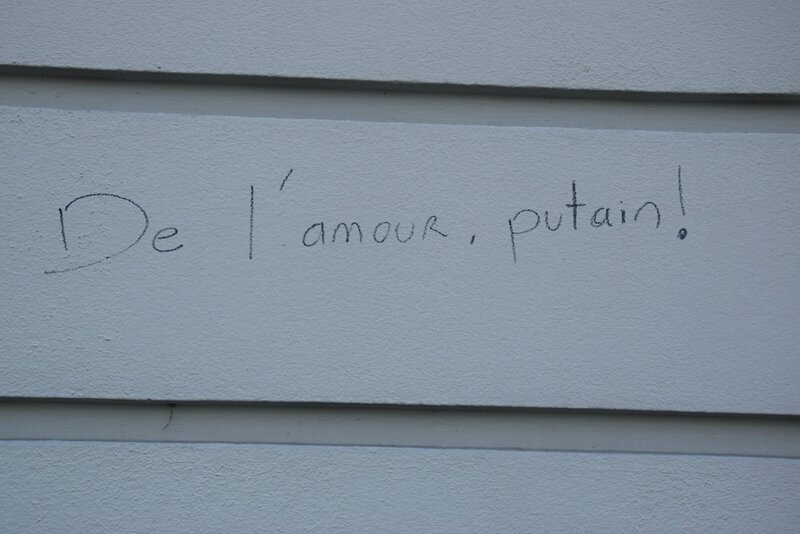 De l'amour, putain!